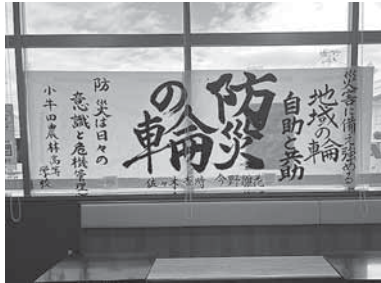 災害に備え強める
地域の輪
自助と共助
防災
の輪
今野
佐々木
防災は日々の
意識と危機管理
小牛田農林高等
学校